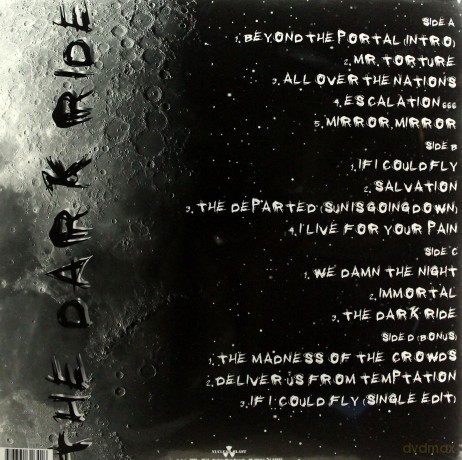 THE DARK RIDE
SIDE A
1. BEYOND THE PORTAL (INTRO)
2. MR. TORTURE
3. ALL OVER THE NATIONS
4. ESCALATION 666
5. MIRROR, MIRROR
SIDE B
1. IF I COULD FLY
2. SALVATION
3. THE DEPARTED (SUN IS GOING DOWN)
4. I LIVE FOR YOUR PAIN
SIDE C
1. WE DAMN THE NIGHT
2. IMMORTAL
3. THE DARK RIDE
SIDE D (BONUS)
1. THE MADNESS OF THE CROWDS
2. DELIVER US FROM TEMPTATION
3. IF I COULD FLY (SINGLE EDIT)
NUCLEAR BLAST
dvdmax